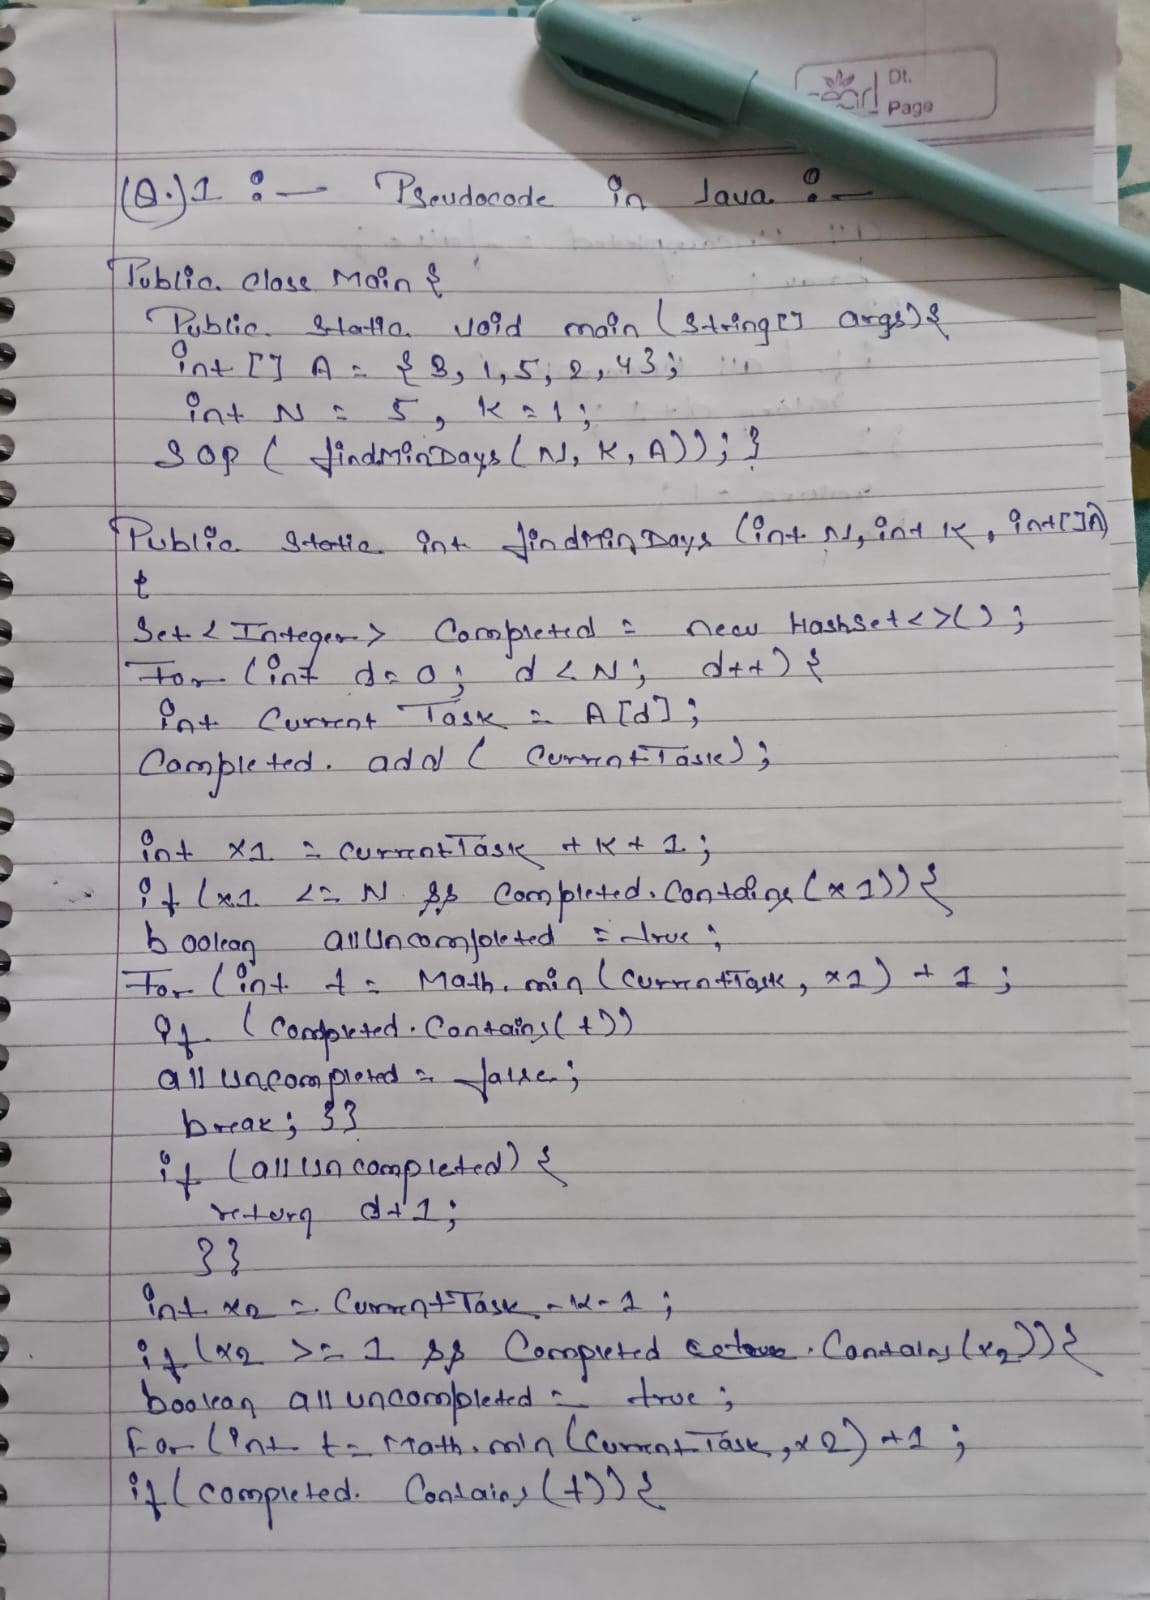 Dt.
Page
(Q.)1 :— Pseudocode in Java :—
Public class Main {
Public static void main (String[] args) {
int [] A = {3, 1, 5, 2, 4};
int N = 5, K = 1;
SOP ( findMinDays (N, K, A)); }
Public static int findMinDays (int N, int K, int[]A)
{
Set < Integer > Completed = new HashSet<>();
For (int d=0; d < N; d++) {
int Current Task = A[d];
Completed. add ( CurrentTask);
int x1 = currentTask + K + 1;
if (x1 <= N && Completed.Contains (x1)) {
boolean allUncompleted = true;
For (int t = Math.min (CurrentTask, x1) + 1 ;
if (Completed.Contains(t))
all uncompleted = false;
break; }}
if (allUncompleted) {
return d+1;
}}
int x2 = CurrentTask - K - 1 ;
if (x2 >= 1 && Completed .Contains(x2)) {
boolean all uncompleted = true;
For (int t = Math.min (CurrentTask, x2) +1 ;
if (completed. Contains (t)) {